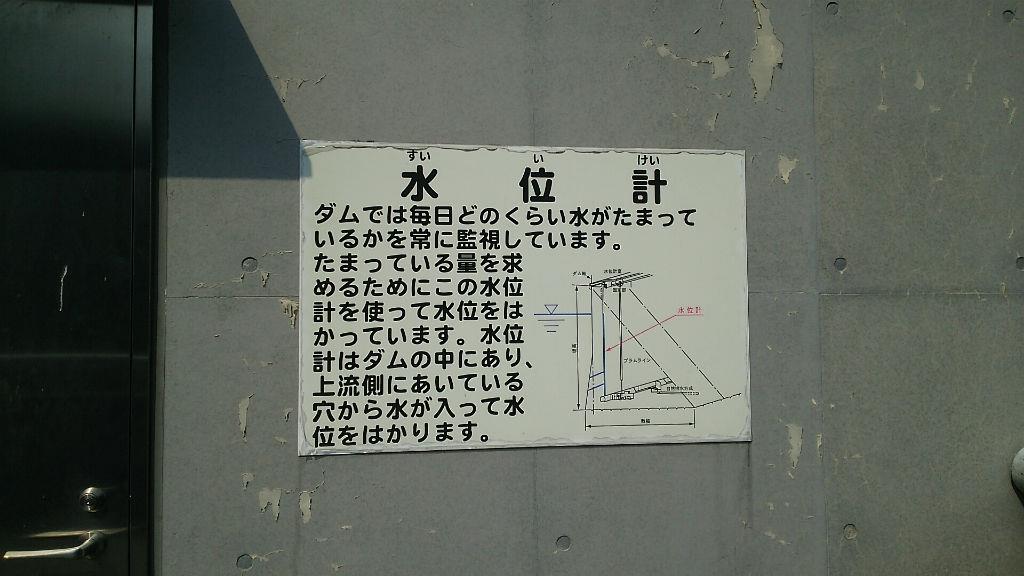 すい い けい
水 位 計
ダムでは毎日どのくらい水がたまって
いるかを常に監視しています。
たまっている量を求
めるためにこの水位
計を使って水位をは
かっています。水位
計はダムの中にあり、
上流側にあいている
穴から水が入って水
位をはかります。
ダム軸
水位計室
水位計
プラムライン